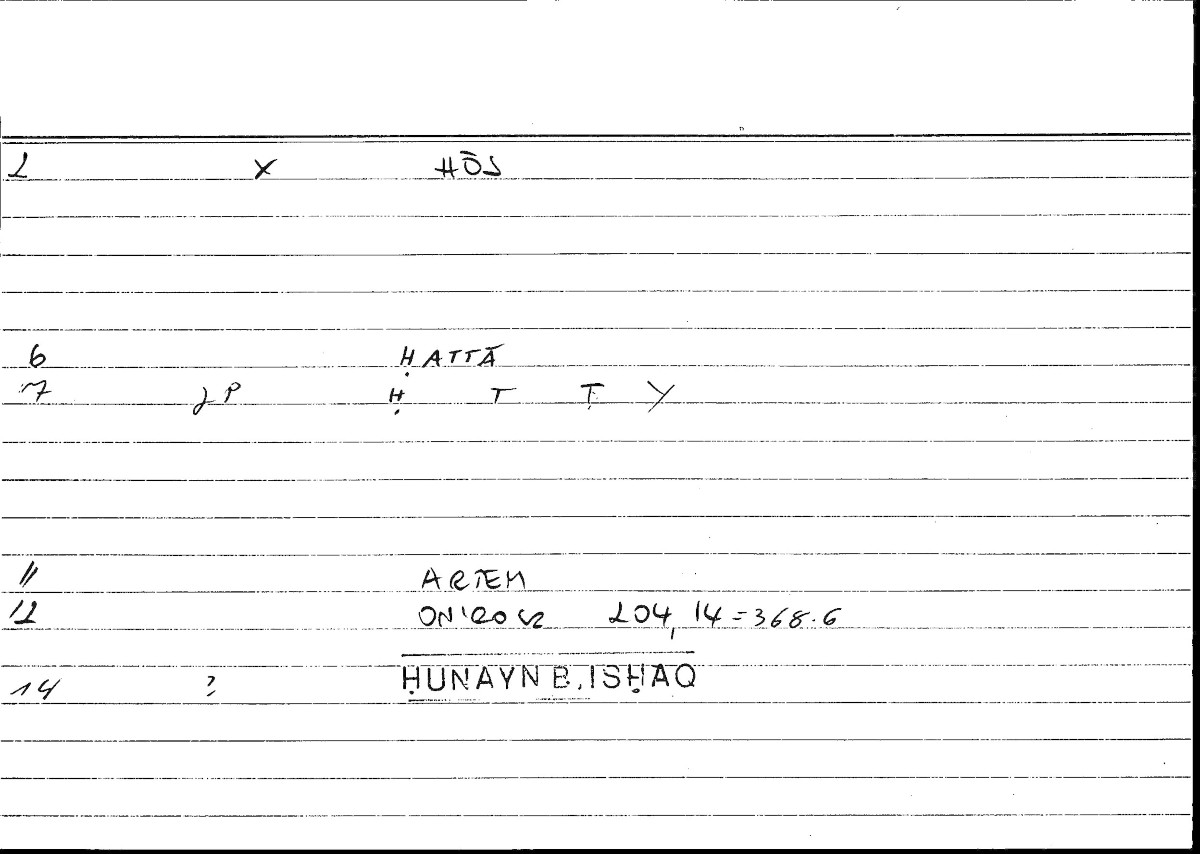 2 X HŌS
6 ḤATTĀ
7 LP Ḥ T Ṭ Y
11 ARTEM
12 ONIROCR 204,14=368.6
14 ? ḤUNAYN B. ISḤAQ